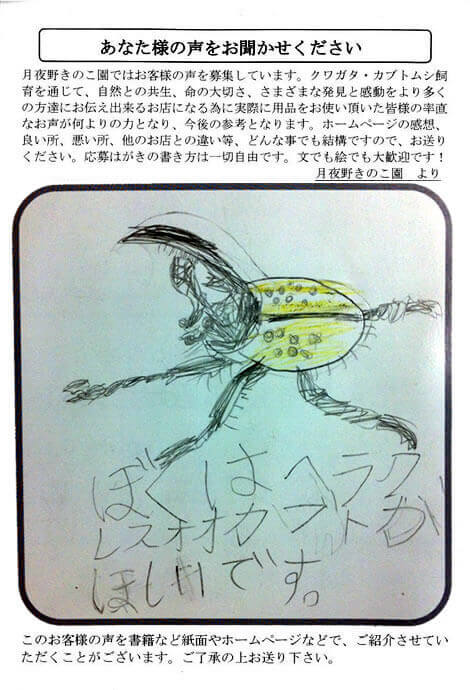 あなた様の声をお聞かせください
月夜野きのこ園ではお客様の声を募集しています。クワガタ・カブトムシ飼
育を通じて、自然との共生、命の大切さ、さまざまな発見と感動をより多く
の方達にお伝え出来るお店になる為に実際に用品をお使い頂いた皆様の率直
なお声が何よりの力となり、今後の参考となります。ホームページの感想、
良い所、悪い所、他のお店との違い等、どんな事でも結構ですので、お送り
ください。応募はがきの書き方は一切自由です。文でも絵でも大歓迎です！
月夜野きのこ園　より
ぼくはヘラク
レスオオカブトが
ほしいです。
このお客様の声を書籍など紙面やホームページなどで、ご紹介させてい
ただくことがございます。ご了承の上お送り下さい。